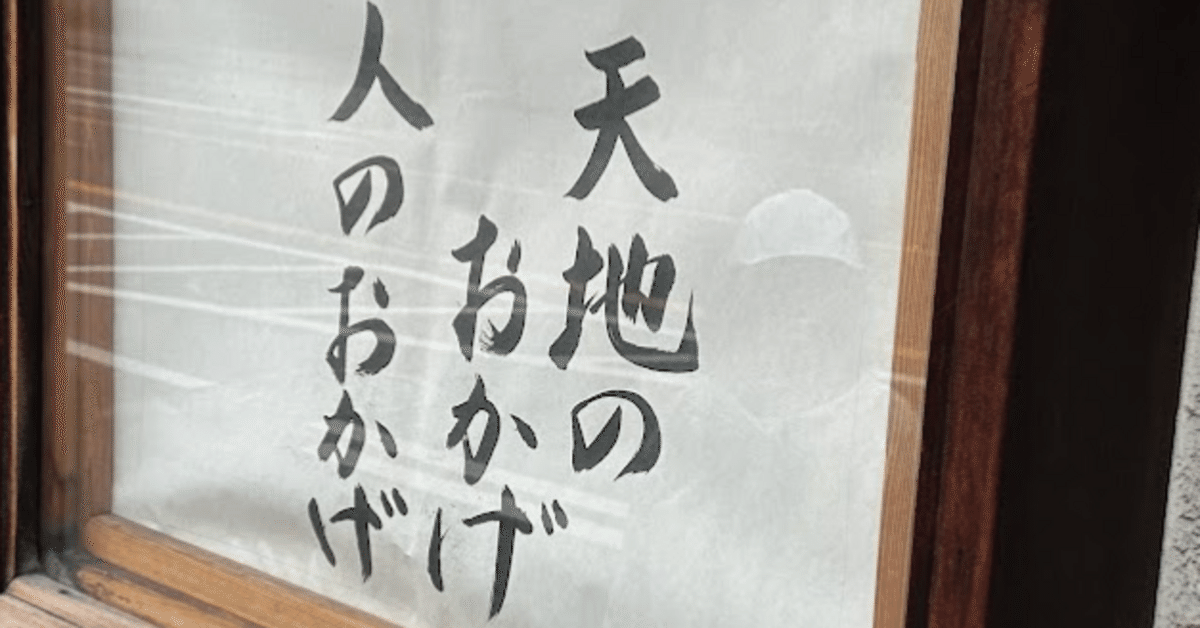 天地の
おかげ
人のおかげ